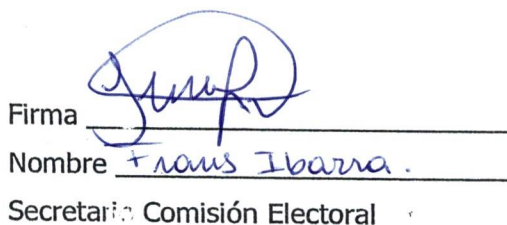 Firma
Nombre Frans Ibarra.
Secretario Comisión Electoral